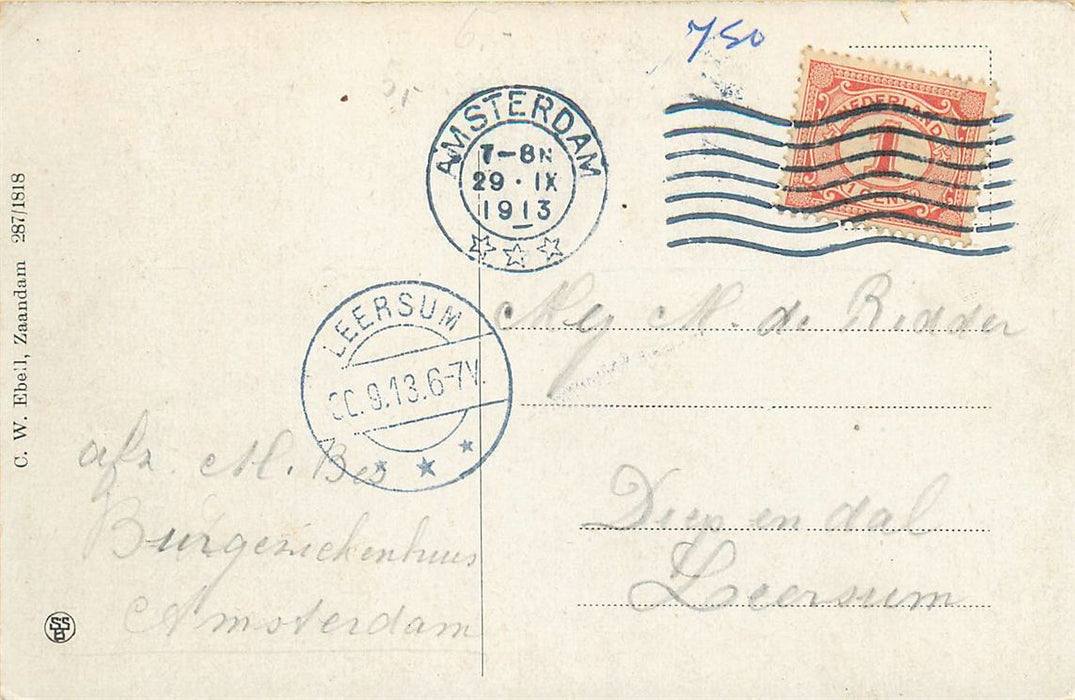 750
NEDERLAND
1
1 CENT
AMSTERDAM
7-8N
29 · IX
1913
LEERSUM
9.13.6-7V.
C. W. Ebell, Zaandam 287/1818
Mej M. de Ridder
Diep en dal
Leersum
afz. M. Bes
Burgeziekenhuis
Amsterdam